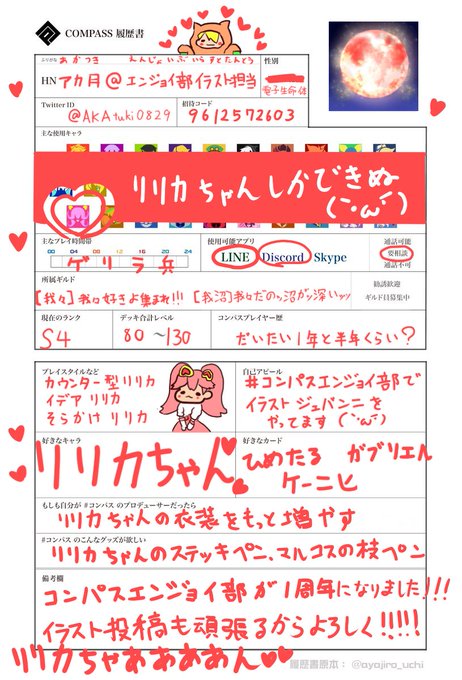 COMPASS 履歴書
ふりがな あかつき えんじょいぶいらすとたんとう
HN アカ月@エンジョイ部イラスト担当
性別
電子生命体
Twitter ID
@AKAtuki0829
招待コード
9612572603
主な使用キャラ
リリカちゃんしかできぬ
(´･ω･`)
主なプレイ時間帯
00 04 08 12 16 20 24
ゲリラ兵
使用可能アプリ
LINE Discord Skype
通話可能
要相談
通話不可
所属ギルド
【我々】我々好きよ集まれ!!! 【我沼】我々だのッ沼が深いッッ
勧誘歓迎
ギルド員募集中
現在のランク
S4
デッキ合計レベル
80〜130
コンパスプレイヤー歴
だいたい1年と半年くらい?
プレイスタイルなど
カウンター型リリカ
イデア リリカ
そらかけ リリカ
自己アピール
#コンパスエンジョイ部で
イラスト ジュバンニを
やってます(´･ω･`)
好きなキャラ
リリカちゃん
好きなカード
ひめたる ガブリエル
ケーニヒ
もしも自分が #コンパス のプロデューサーだったら
リリカちゃんの衣装をもっと増やす
#コンパス のこんなグッズが欲しい
リリカちゃんのステッキペン、マルコスの枝ペン
備考欄
コンパスエンジョイ部が1周年になりました!!!
イラスト投稿も頑張るからよろしく!!!!
リリカちゃあああああん
履歴書原本: @ayajiro_uchi